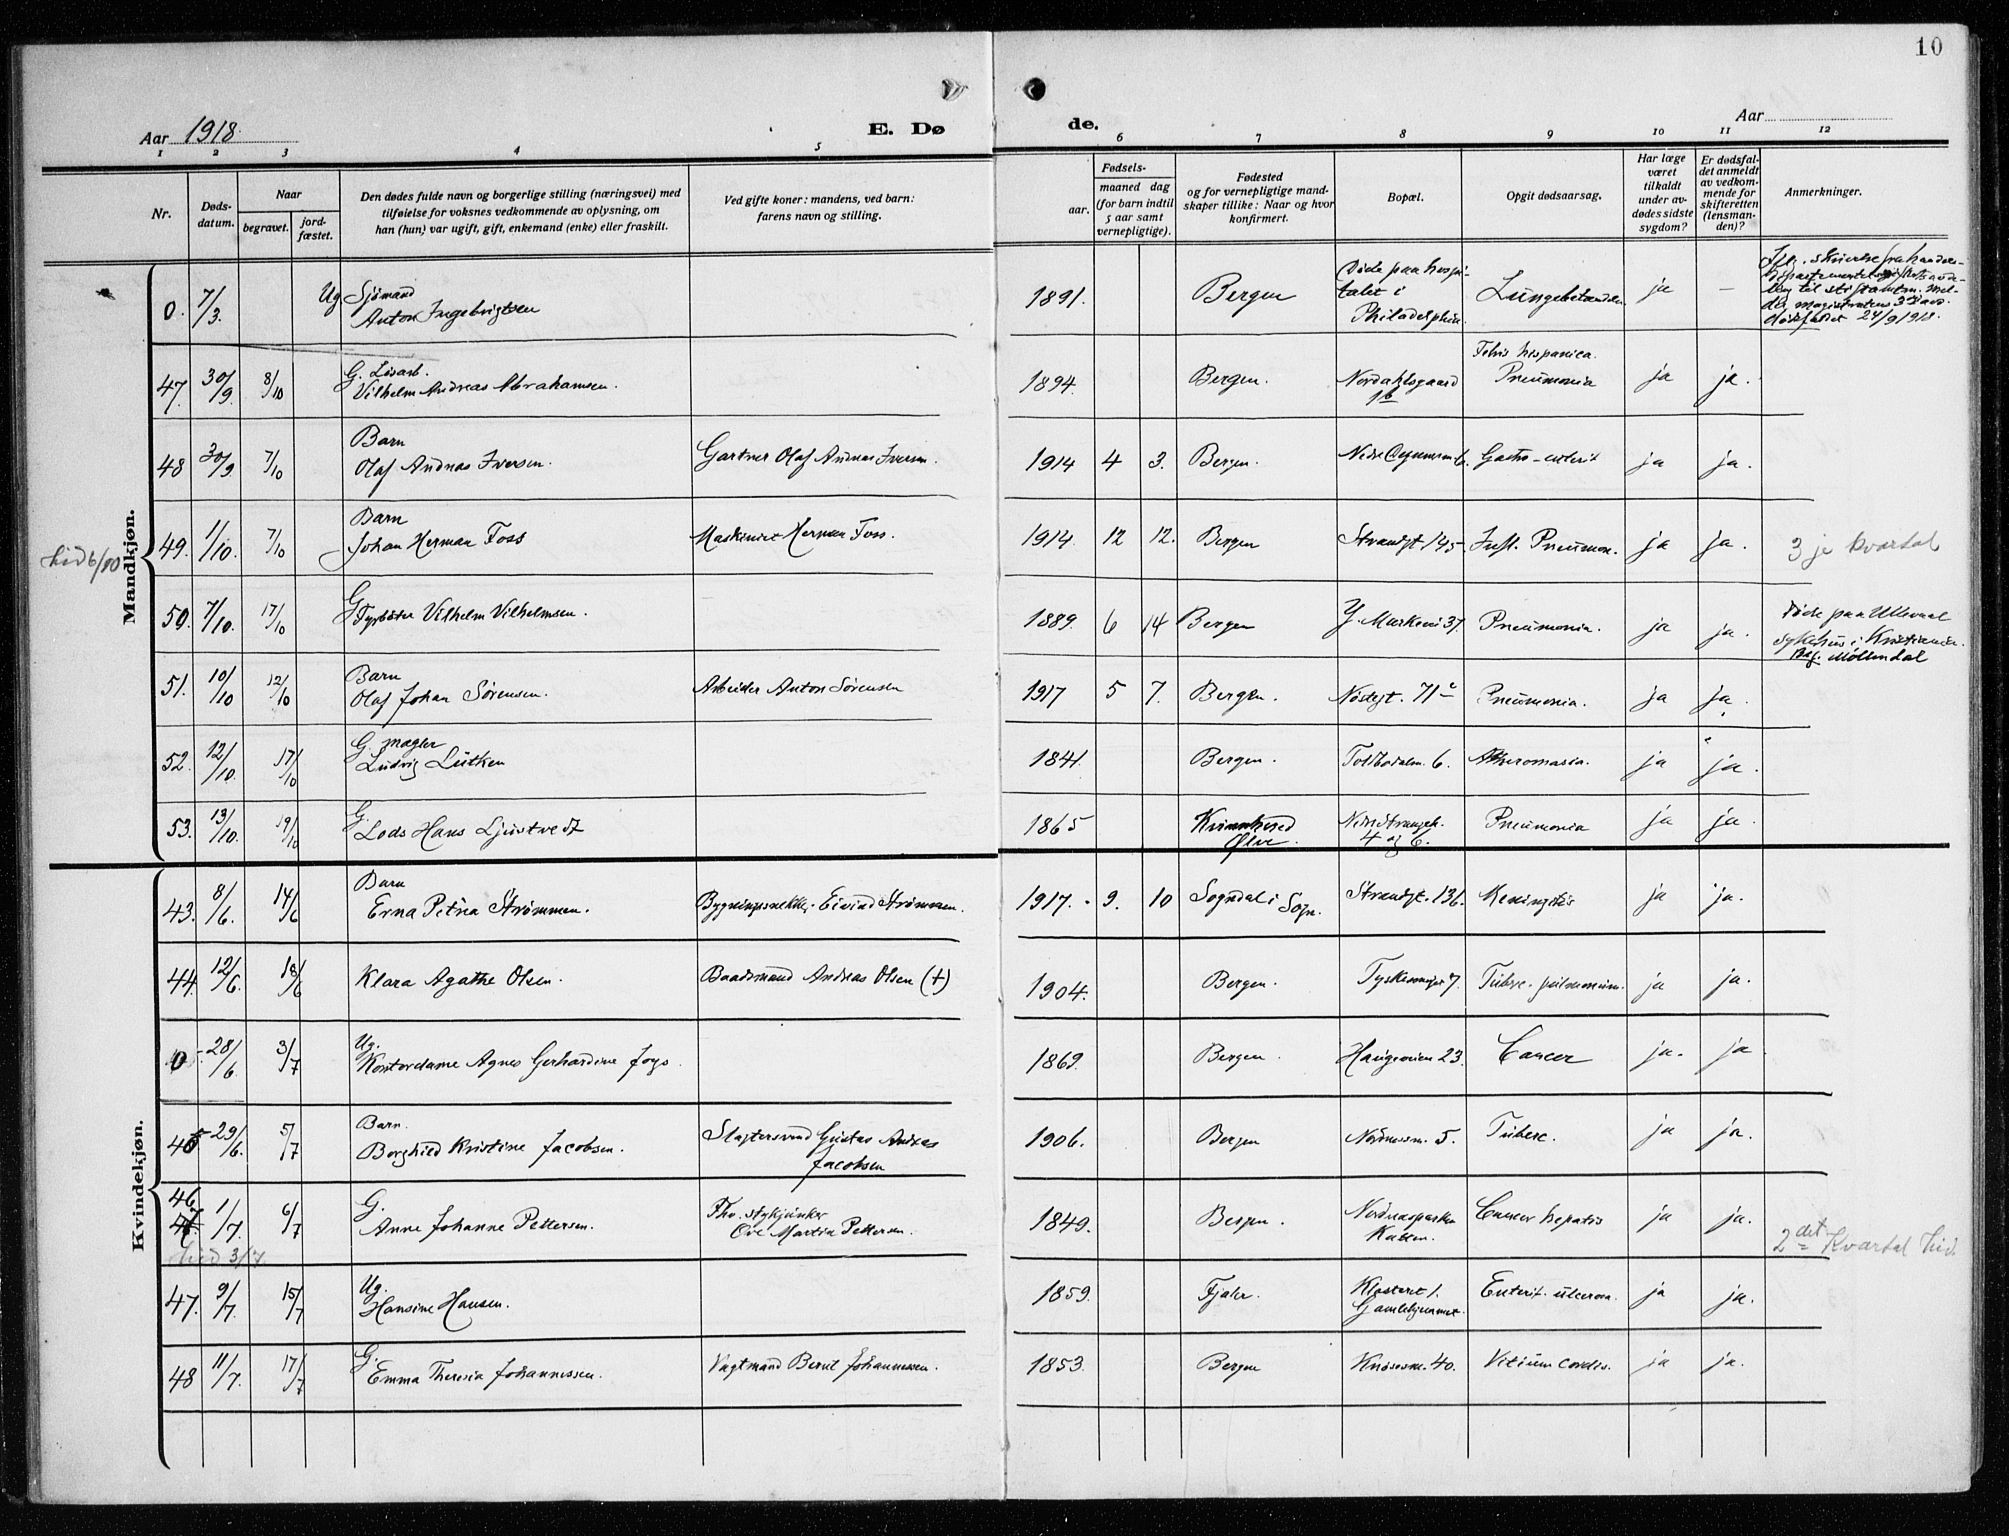 10
Aar 1918.
E. Dø
de.
Aar
1 2 3 4 5 6 7 8 9 10 11 12
Nr.
Døds-
datum.
Naar
begravet.
jord-
fæstet.
Den dødes fulde navn og borgerlige stilling (næringsvei) med
tilføielse for voksnes vedkommende av oplysning, om
han (hun) var ugift, gift, enkemand (enke) eller fraskilt.
Ved gifte koner: mandens, ved barn:
farens navn og stilling.
Fødsels-
aar.
maaned dag
(for barn indtil
5 aar samt
vernepligtige).
Fødested
og for vernepligtige mand-
skaper tillike: Naar og hvor
konfirmert.
Bopæl.
Opgit dødsaarsag.
Har læge
været
tilkaldt
under av-
dødes sidste
sygdom?
Er dødsfal-
det anmeldt
av vedkom-
mende for
skifteretten
(lensman-
den)?
Anmerkninger.
Mandkjøn.
0. 7/3. Ug Sjömand
Anton Ingebrigtsen
1891. Bergen
Døde paa hospi-
talet i
Philadelphia.
ja —
24/9 1918.
47. 30/9. 8/10 G. Løsarb.
Vilhelm Andreas Abrahamsen.
1894. Bergen. Nordahlsgaard
1b
Febris hispanica.
Pneumonia ja ja.
48 30/9. 7/10 Barn
Olaf Andreas Iversen. Gartner Olaf Andreas Iversen.
1914 4 3. Bergen. Gastro-enterit ja ja.
49. 1/10. 7/10 Barn
Johan Herman Foss Maskinist Herman Foss.
1914. 12 12. Bergen Strandgt 145 Infl. Pneumon. ja ja. 3je kvartal
hid 6/10
50. 7/10. 17/10 G.
Fyrbøter Vilhelm Vilhelmsen.
1889. 6 14 Bergen Y. Markevei 37. Pneumonia. ja ja.
Døde paa Ulleval
sykehus i Kristiania.
Beg. Møllendal
51. 10/10 12/10 Barn
Olaf Johan Sørensen. Arbeider Anton Sørensen
1917 5 7. Bergen. Nöstegt. 71 c Pneumonia. ja ja.
52. 12/10. 17/10 G. mægler
Ludvig Lütken
1841. Bergen. Toldbodalm. 6. Atheromasia. ja ja.
53. 13/10. 19/10 G.
Lods Hans Ljustvedt
1865 Kvinnherred
Ølve.
4 og 6. Pneumonia ja ja.
Kvindekjøn.
43. 8/6. 14/6 Barn
Erna Petra Strømmen. Bygningssnekker Eivind Strømmen.
1917. 9. 10 Sogndal i Sogn. Strandgt. 136. Meningitis ja ja.
44. 12/6. 18/6 Klara Agathe Olsen. Baadsmand Andreas Olsen (†)
1904. Bergen. 7. Tuberc. pulmonum. ja ja.
0 28/6. 3/7 Ug.
Kontordame Agnes Gerhardine Joys.
1869. Bergen. Haugeveien 23. Cancer ja. ja
45 29/6. 5/7 Barn.
Borghild Kristine Jacobsen. Slagtersvend Gustav Andreas
Jacobsen
1906. Bergen Nordnesm. 5. Tuberc. ja ja.
46. 1/7. 6/7 G.
Anne Johanne Pettersen. Fhv. stykjunker
Ove Martin Pettersen.
1849. Bergen. Nordnesparken
Cancer hepatis ja ja.
hid 3/7.
2det Kvartal hid.
47. 9/7. 15/7 Ug.
Hansine Hansen.
1859. Fjaler. Klosteret 1.
Gamlehjemmet. Enterit. ulcerosa. ja ja.
48 11/7. 17/7 G.
Emma Theresia Johannessen. Vagtmand Bernt Johannessen.
1853. Bergen Knøsesm. 40. Vitium cordis. ja ja.